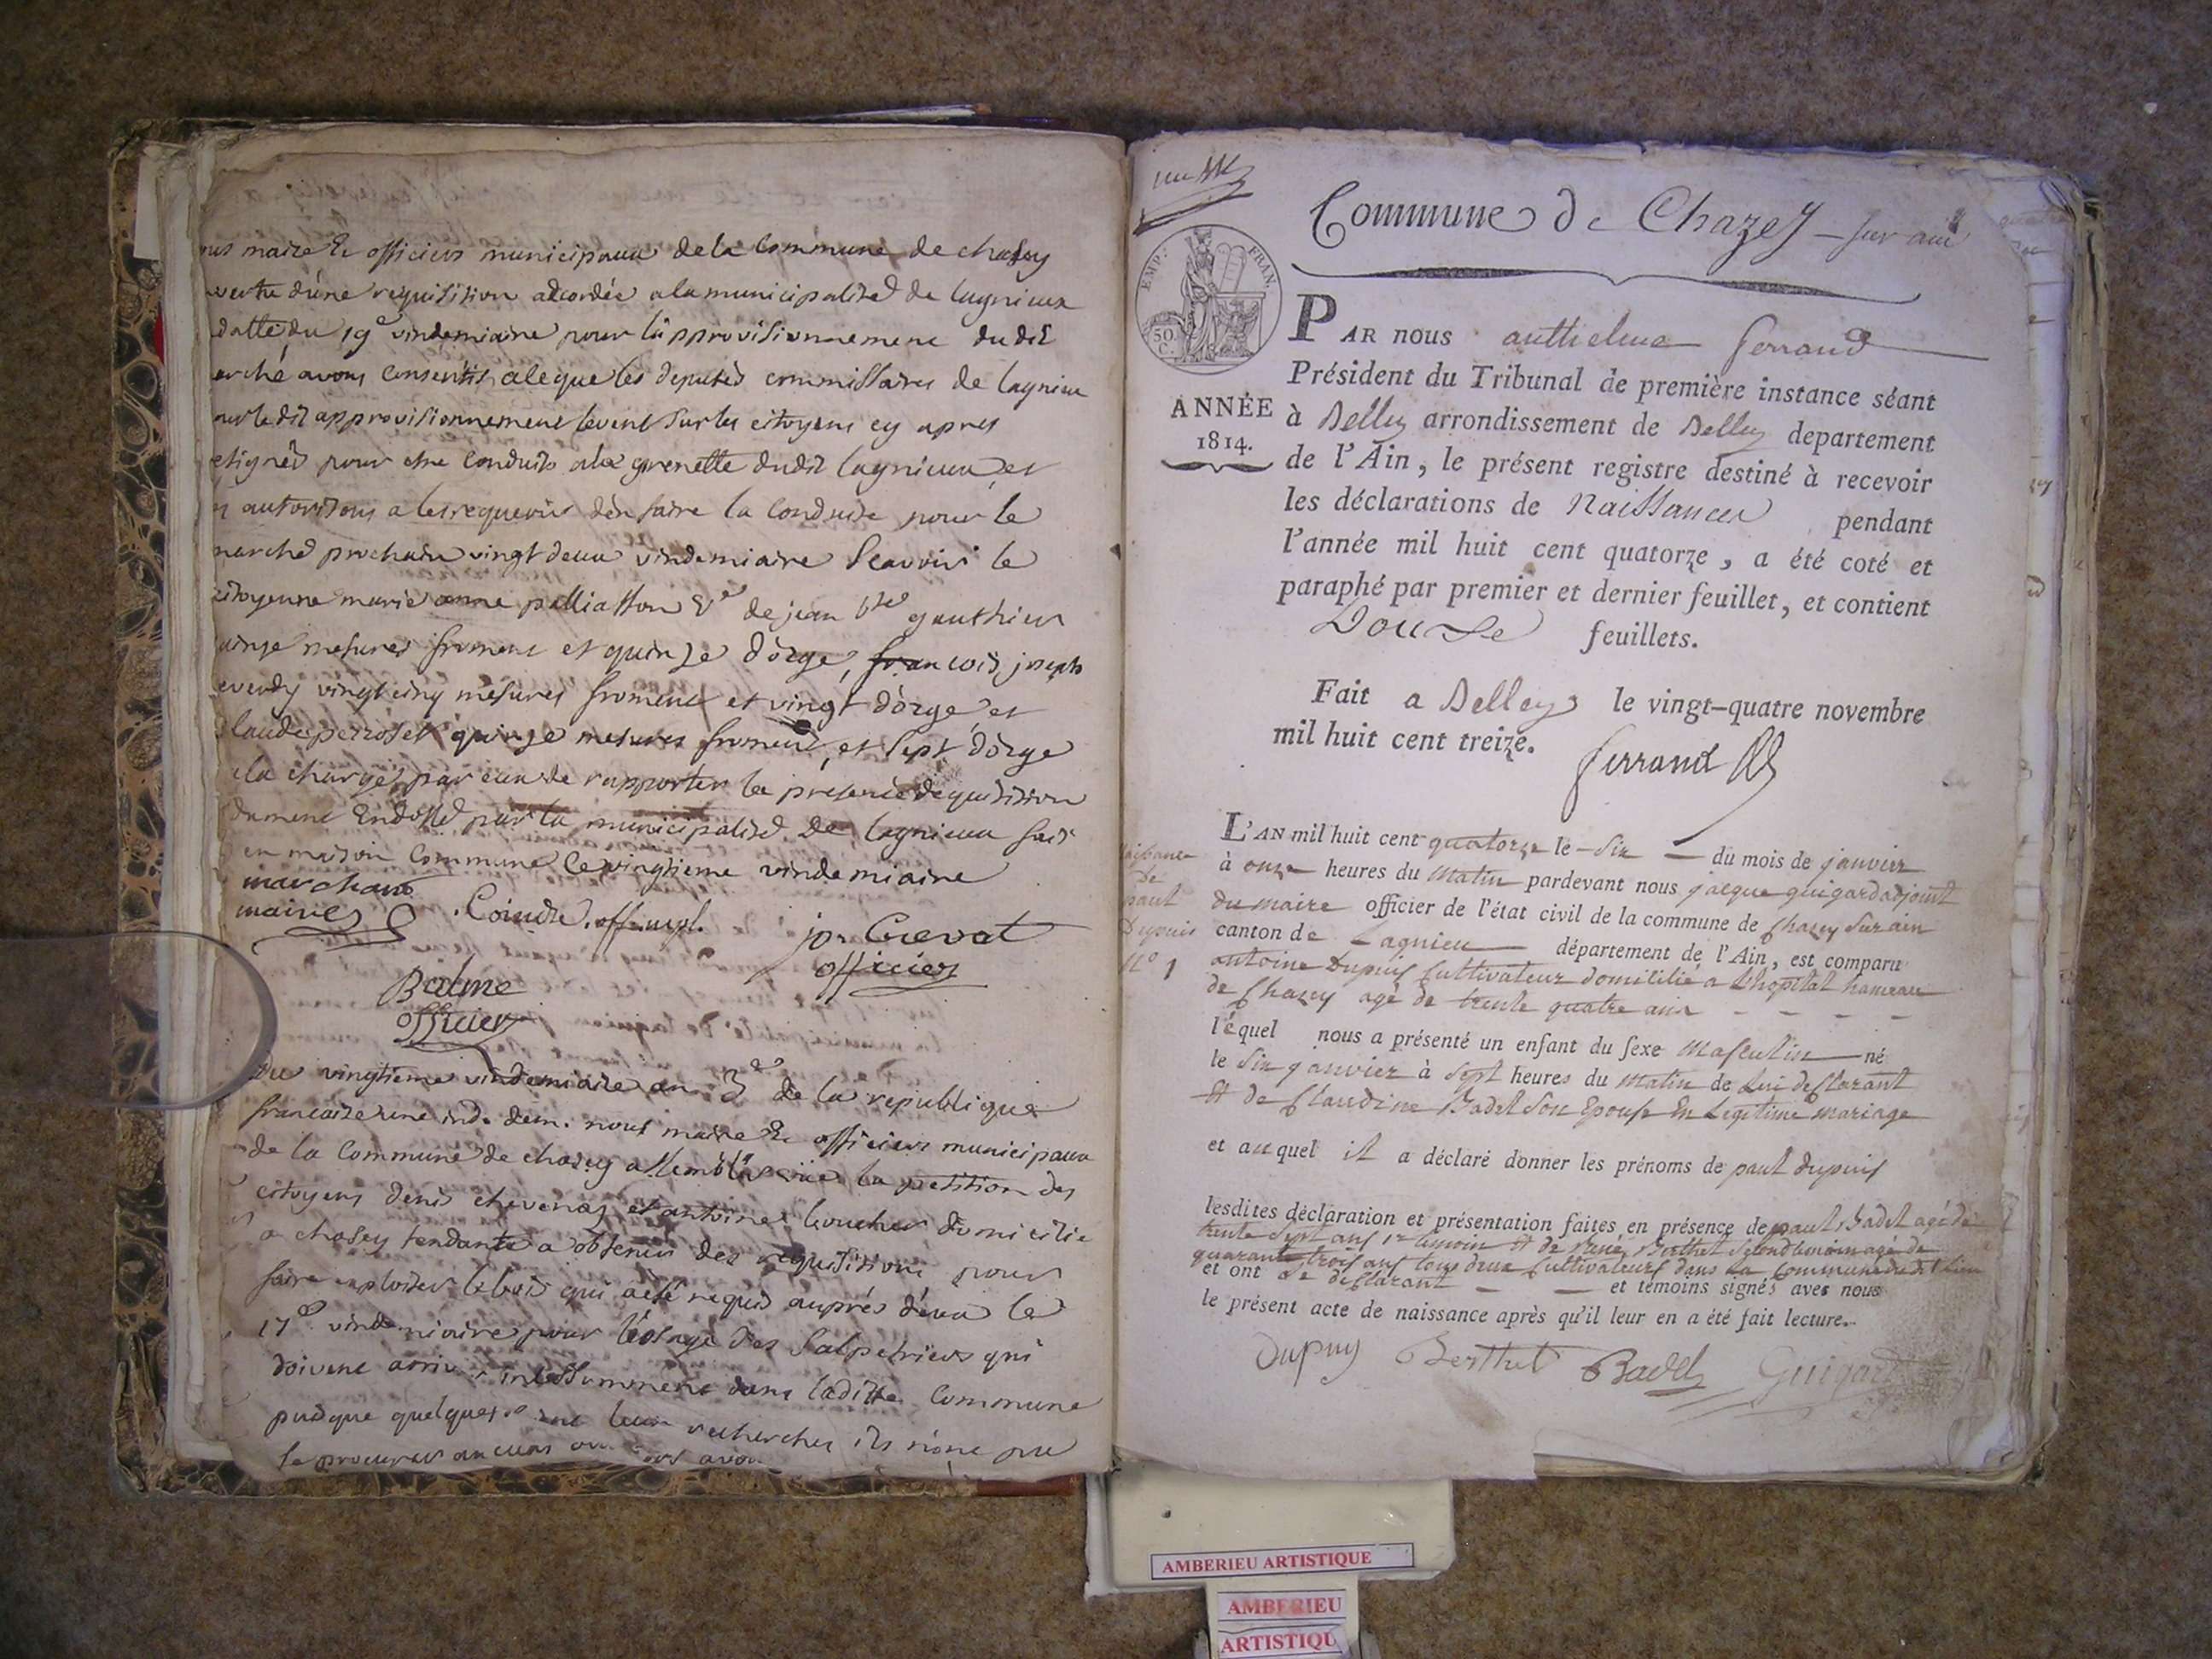 maire & officiers municipaux de la Commune de chasey
d'une requisition accordée a la municipalité de lagnieux
datte du 19e vindemiaire pour l'approvisionnement dudit
arché avons consentis a ce que les deputés commissaires de lagnieu
ledit approvisionnement levent sur les citoyens cy apres
pour etre conduits a la grenette dudit lagnieux et
autorisons a les requerir d'en faire la conduite pour le
marché prochain vingt deux vindemiaire Scavoir le
citoyenne marie anne palliasson Ve de jean bte gauthier
mesures froment et quinze d'orge, francois joseph
vingt cinq mesures froment et vingt d'orge et
claude perroset quinze mesures froment, et sept d'orge
a la charge par eux de rapporter la presente requisition
dument Endossé par la municipalité de lagnieux fait
en maison Commune le vingtieme vindemiaire
marchand
maire Coindre. off. mpl. jph Crevat
officier
Balme
officier
Du vingtieme vindemiaire an 3e de la republique
francaise une ind. dem. nous maire & officiers municipaux
de la Commune de chasey assemblés vue la petition des
citoyens denis chevenay et antoine boucher domicilié
a chasey tendante a obtenir des requisitions pour
faire exploiter le bois qui a été requis auprés d'eux le
17e vindemiaire pour l'usage des Salpetriers qui
doivent arriver incessamment dans laditte Commune
puisque quelques leur recherches ils n'ont pu
se procurer aucuns
Commune de Chazey - sur ain
EMP: FRAN.
50.
C.
PAR nous anthelme ferrand
Président du Tribunal de première instance séant
ANNÉE
1814.
à Belley arrondissement de Belley departement
de l'Ain, le présent registre destiné à recevoir
les déclarations de Naissances pendant
l'année mil huit cent quatorze, a été coté et
paraphé par premier et dernier feuillet, et contient
Douze feuillets.
Fait a Belley le vingt-quatre novembre
mil huit cent treize.
ferrand
Naissance
de
paul
Dupuis
No 1
L'AN mil huit cent quatorze le - Six - du mois de janvier
à onze heures du Matin pardevant nous jacque guigard adjoint
du maire officier de l'état civil de la commune de Chazey Sur ain
canton de Lagnieu département de l'Ain, est comparu
antoine Dupuis Cultivateur domicilié a L'hopital hameau
de Chazey agé de trente quatre ans - - - -
léquel nous a présenté un enfant du sexe Masculin né
le Six janvier à Sept heures du Matin de Lui déclarant
Et de Claudine Badel Son Epouse En Legitime Mariage
et auquel il a déclaré donner les prénoms de paul dupuis
lesdites déclaration et présentation faites en présence de paul Badel agé de
trente Sept ans 1er temoin Et de René Berthet Second temoin agé de
quarante trois ans tous deux Cultivateurs dans La Commune dudit Lieu
et ont Le déclarant - - et témoins signés avec nous
le présent acte de naissance après qu'il leur en a été fait lecture.
Dupuy Berthet Badel Guigard
AMBERIEU ARTISTIQUE
AMBERIEU
ARTISTIQU